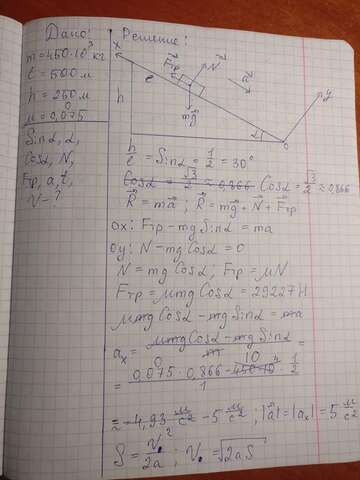 Дано:
m=450·10³ кг
l=500 м
h=250 м
μ=0,075
Sinα, α,
Cosα, N,
Fтр, a, t,
v-?
Решение:
x
Fтр
N
a
l
y
h
mg
α
0
h/l = Sinα = 1/2 = 30°
Cosα = √3/2 ≈ 0,866 Cosα = √3/2 ≈ 0,866
R = ma ; R = mg + N + Fтр
ox: Fтр - mg Sinα = ma
oy: N - mg Cosα = 0
N = mg Cosα ; Fтр = μN
Fтр = μmg Cosα = 29227 Н
μmg Cosα - mg Sinα = ma
aₓ = μmg Cosα - mg Sinα / m =
= 0,075 · 0,866 - 10 · 1/2 / 1
≈ -4,93 м/с² - 5 м/с² ; |a| = |aₓ| = 5 м/с²
S = v²/2a ; v = √2aS